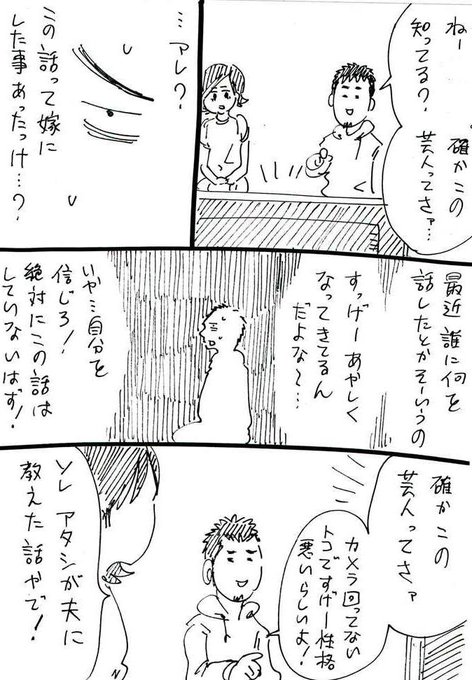 ねー
知ってる?
確かこの
芸人ってさァ…
…アレ?
この話って嫁に
した事あったっけ…?
最近誰に何を
話したとかそーいうの
すっげーあやしく
なってきてるん
だよな〜…
いや…自分を
信じろ!
絶対にこの話は
していないはず!
確かこの
芸人ってさァ
カメラ回ってない
トコですげー性格
悪いらしいよ!
ソレアタシが夫に
教えた話やで!